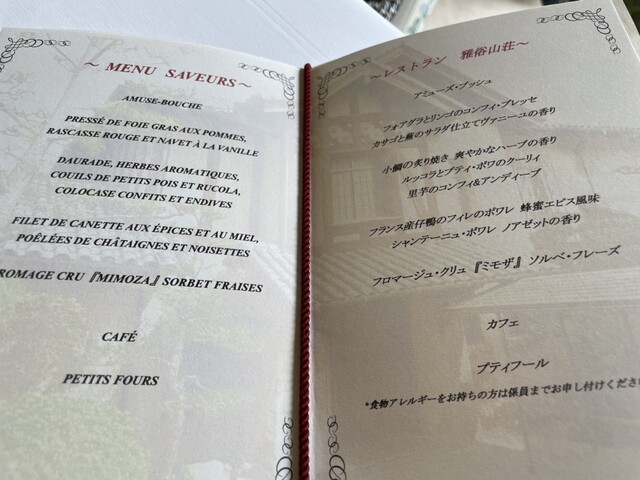 ~ MENU SAVEURS ~
AMUSE-BOUCHE
PRESSÉ DE FOIE GRAS AUX POMMES,
RASCASSE ROUGE ET NAVET À LA VANILLE
DAURADE, HERBES AROMATIQUES,
COUILS DE PETITS POIS ET RUCOLA,
COLOCASE CONFITS ET ENDIVES
FILET DE CANETTE AUX ÉPICES ET AU MIEL,
POÊLÉES DE CHÂTAIGNES ET NOISETTES
ROMAGE CRU 『MIMOZA』 SORBET FRAISES
CAFÉ
PETITS FOURS
~レストラン 雅俗山荘~
アミューズ・ブッシュ
フォアグラとリンゴのコンフィ・プレッセ
カサゴと蕪のサラダ仕立てヴァニーユの香り
小鯛の炙り焼き 爽やかなハーブの香り
ルッコラとプティ・ポワのクーリィ
里芋のコンフィ&アンディーブ
フランス産仔鴨のフィレのポワレ 蜂蜜エピス風味
シャンテーニュ・ポワレ ノアゼットの香り
フロマージュ・クリュ 『ミモザ』 ソルベ・フレーズ
カフェ
プティフール
*食物アレルギーをお持ちの方は係員までお申し付けくださ